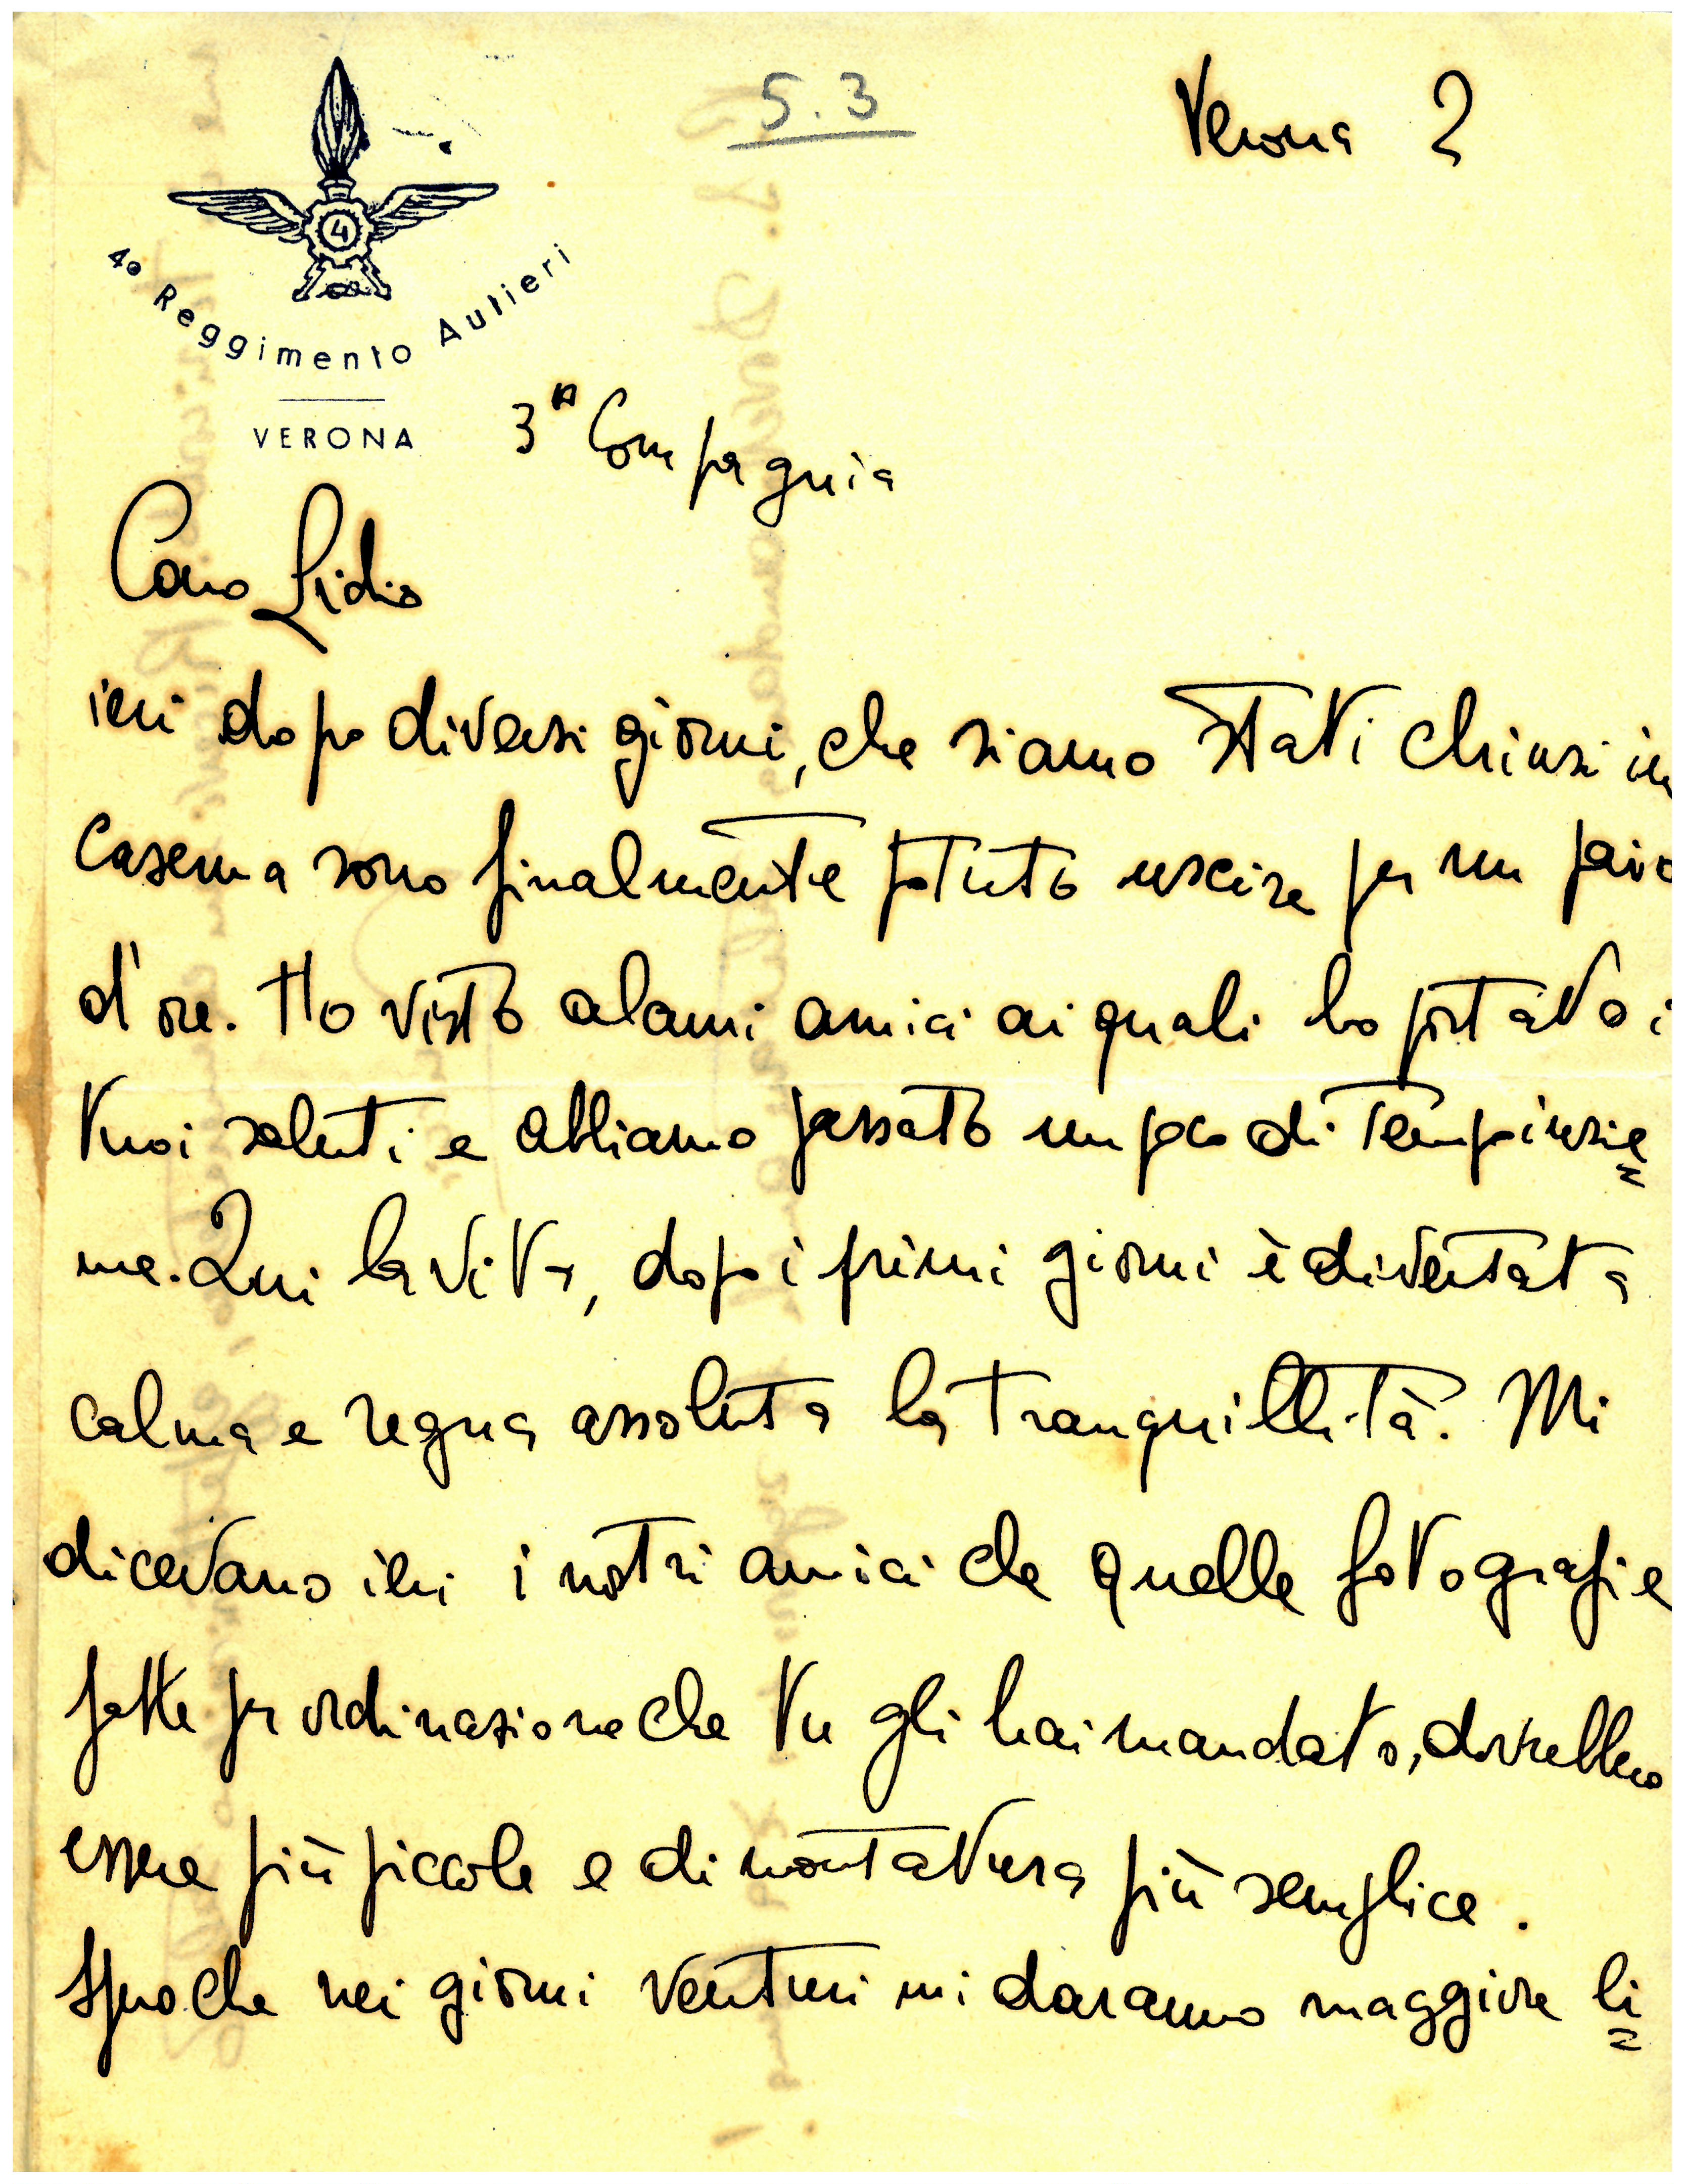 5.3
Verona 2
4
4º Reggimento Autieri
VERONA
3ª Compagnia
Caro Lidio
ieri dopo diversi giorni, che siamo stati chiusi in
caserma sono finalmente potuto uscire per un paio
d'ore. Ho visto alcuni amici ai quali ho portato i
tuoi saluti e abbiamo passato un poco di tempo insie=
me. Qui la vita, dopo i primi giorni è diventata
calma e regna assoluta la tranquillità. Mi
dicevano ieri i nostri amici che quelle fotografie
fatte per ordinazione che tu gli hai mandato, dovrebbero
essere più piccole e di montatura più semplice.
Spero che nei giorni venturi mi daranno maggiore li=